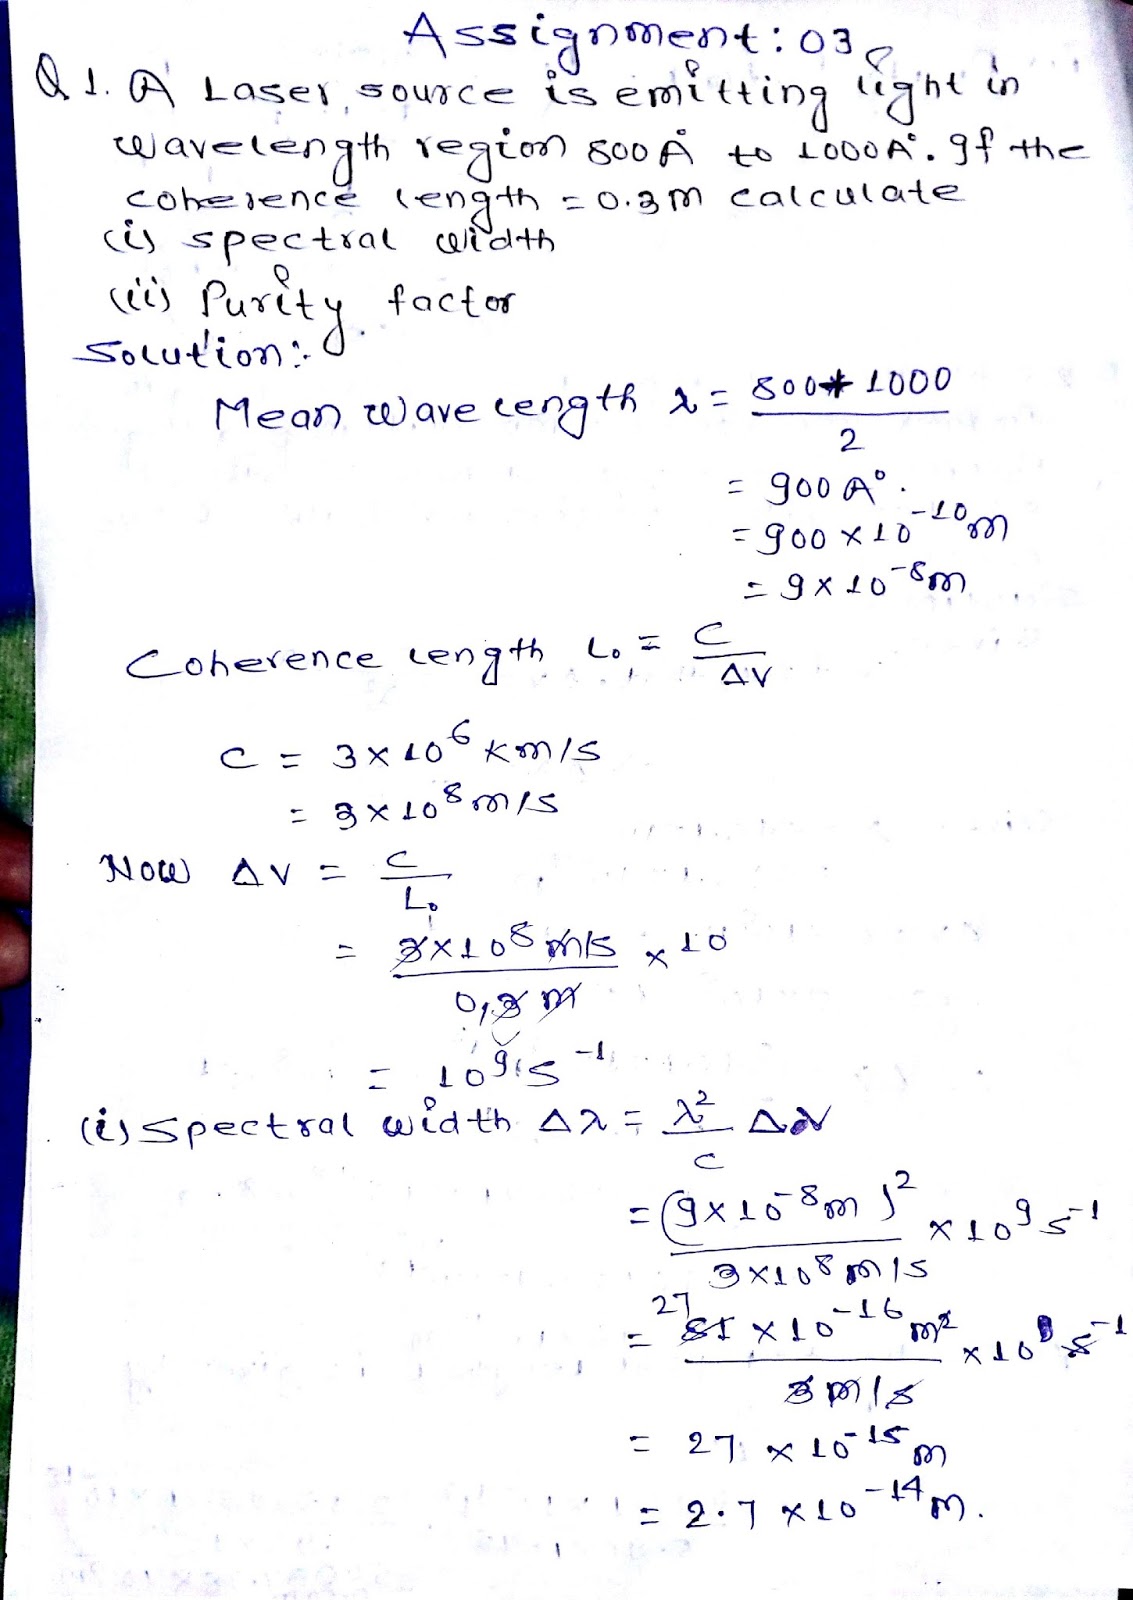 Assignment: 03
Q 1. A Laser source is emitting light in
wavelength region 800Å to 1000A°. If the
coherence length = 0.3m calculate
(i) spectral width
(ii) Purity factor
Solution:-
Mean wave length λ = 800+1000/2
= 900A°.
= 900 × 10^-10 m
= 9 × 10^-8 m
Coherence length L₀ = C/ΔV
C = 3×10^6 km/s
= 3×10^8 m/s
Now ΔV = C/L₀
= 3×10^8 m/s/0.3 m × 10
= 10^9 s^-1
(i) Spectral width Δλ = λ²/C Δν
= (9×10^-8 m)²/3×10^8 m/s × 10^9 s^-1
= 27 81 × 10^-16 m²/3 m/s × 10 s^-1
= 27 × 10^-15 m
= 2.7 × 10^-14 m.